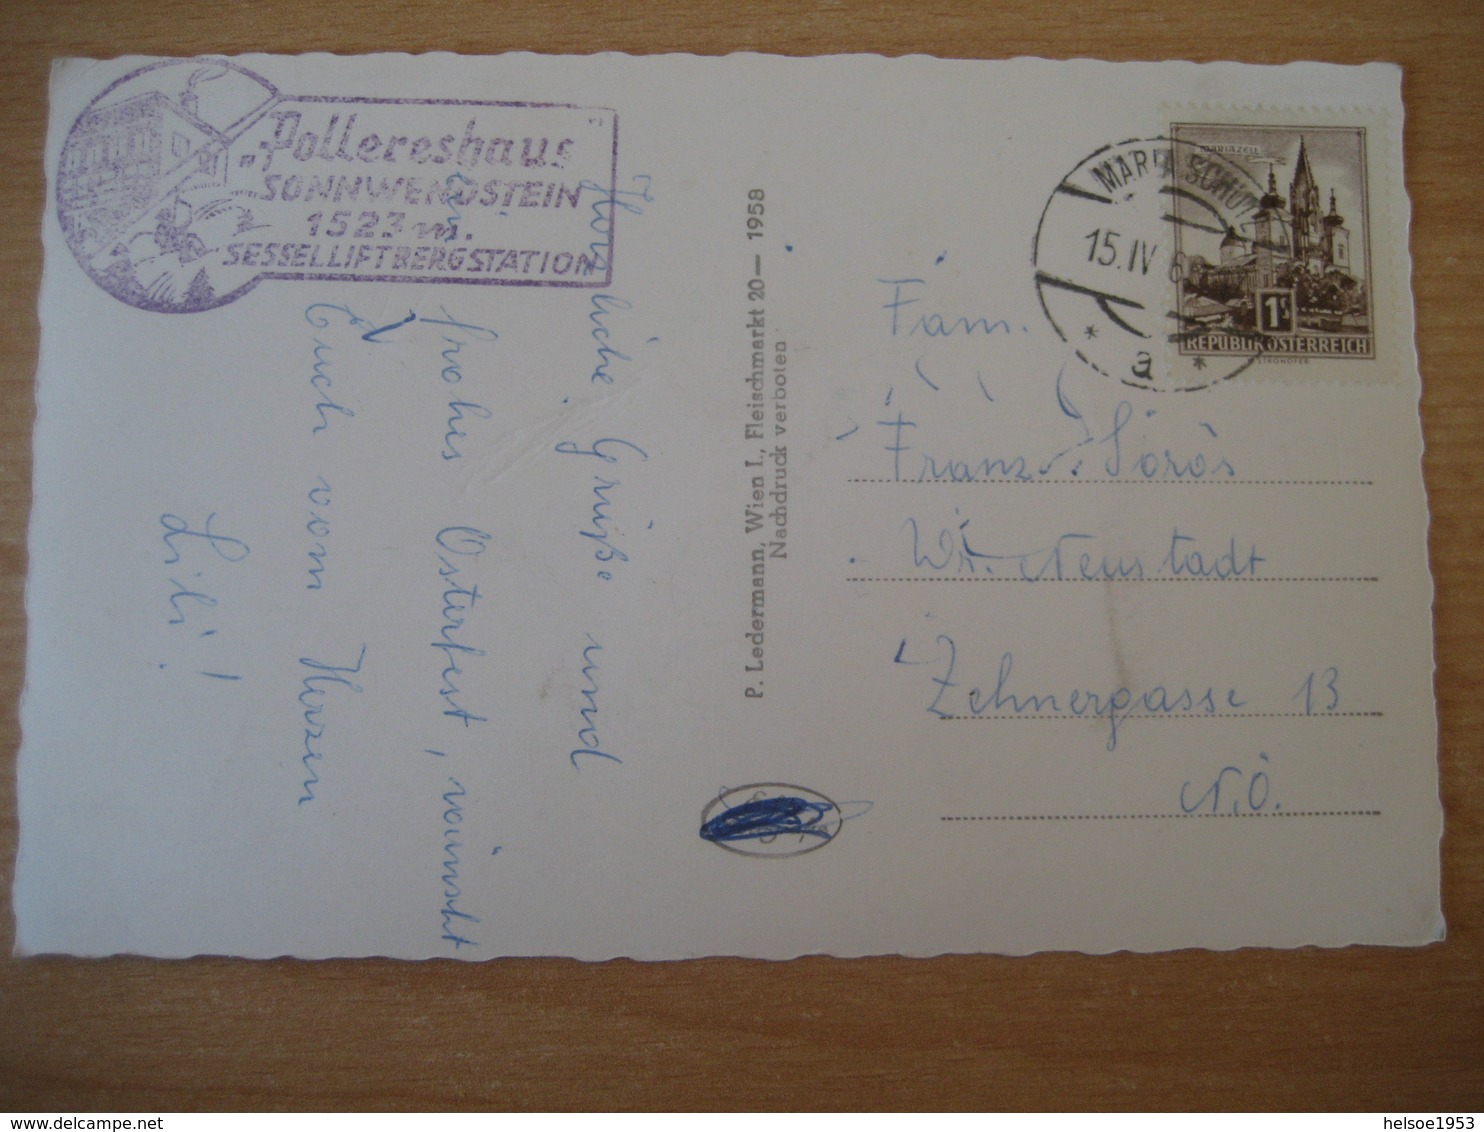 „Pollereshaus"
SONNWENDSTEIN
1523 m.
SESSELLIFTBERGSTATION
Herzliche Grüße und
ein frohes Osterfest, wünscht
Euch vom Herzen
Lili!
P. Ledermann, Wien I., Fleischmarkt 20 — 1958
Nachdruck verboten
MARIA SCHUTZ
15. IV 6
* a *
MARIAZELL
1S
REPUBLIK ÖSTERREICH
STROHOFER
Fam.
Franz Sörös
Wr. Neustadt
Zehnergasse 13
N.Ö.
helsoe1953